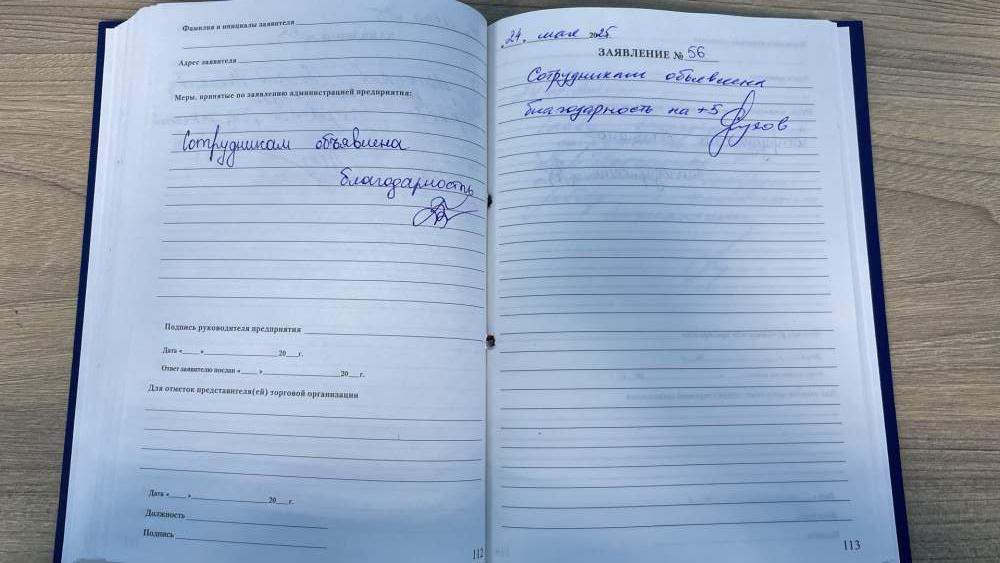 Фамилия и инициалы заявителя
Адрес заявителя
Меры, принятые по заявлению администрацией предприятия:
Сотрудникам объявлена
благодарность
Подпись руководителя предприятия
Дата «___» ___ 20___г.
Ответ заявителю послан «___» ___ 20___г.
Для отметок представителя(ей) торговой организации
Дата «___» ___ 20___г.
Должность
Подпись
112
24. мая 2025
ЗАЯВЛЕНИЕ № 56
Сотрудникам объявлена
благодарность на +5
113